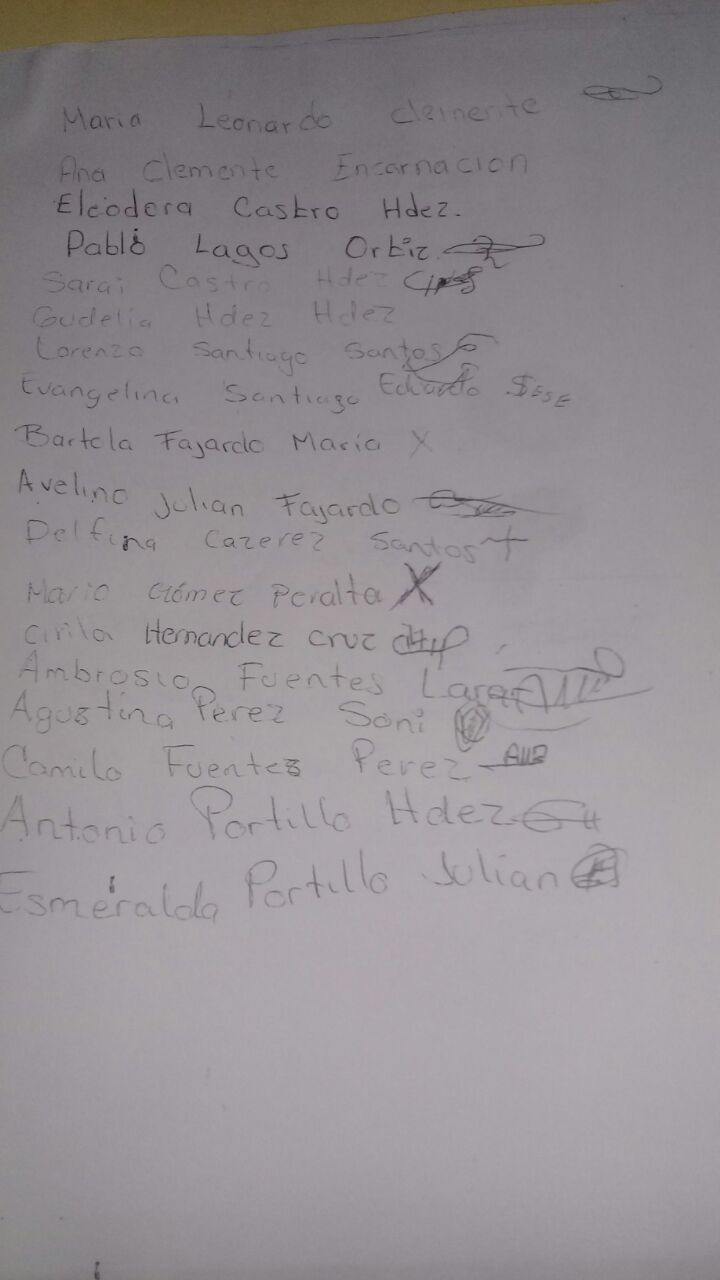 Maria Leonardo clemente
Ana Clemente Encarnacion
Eleodora Castro Hdez.
Pablo Lagos Ortiz.
Sarai Castro Hdez
Gudelia Hdez Hdez
Lorenzo Santiago Santos
Evangelina Santiago Eduardo SESE
Bartola Fajardo Maria X
Avelino Julian Fajardo
Delfina Cazerez Santos
Mario Gómez Peralta X
Cirila Hernandez cruz
Ambrosio Fuentes Lara
Agustina Perez Soni
Camilo Fuentes Perez
Antonio Portillo Hdez
Esmeralda Portillo Julian